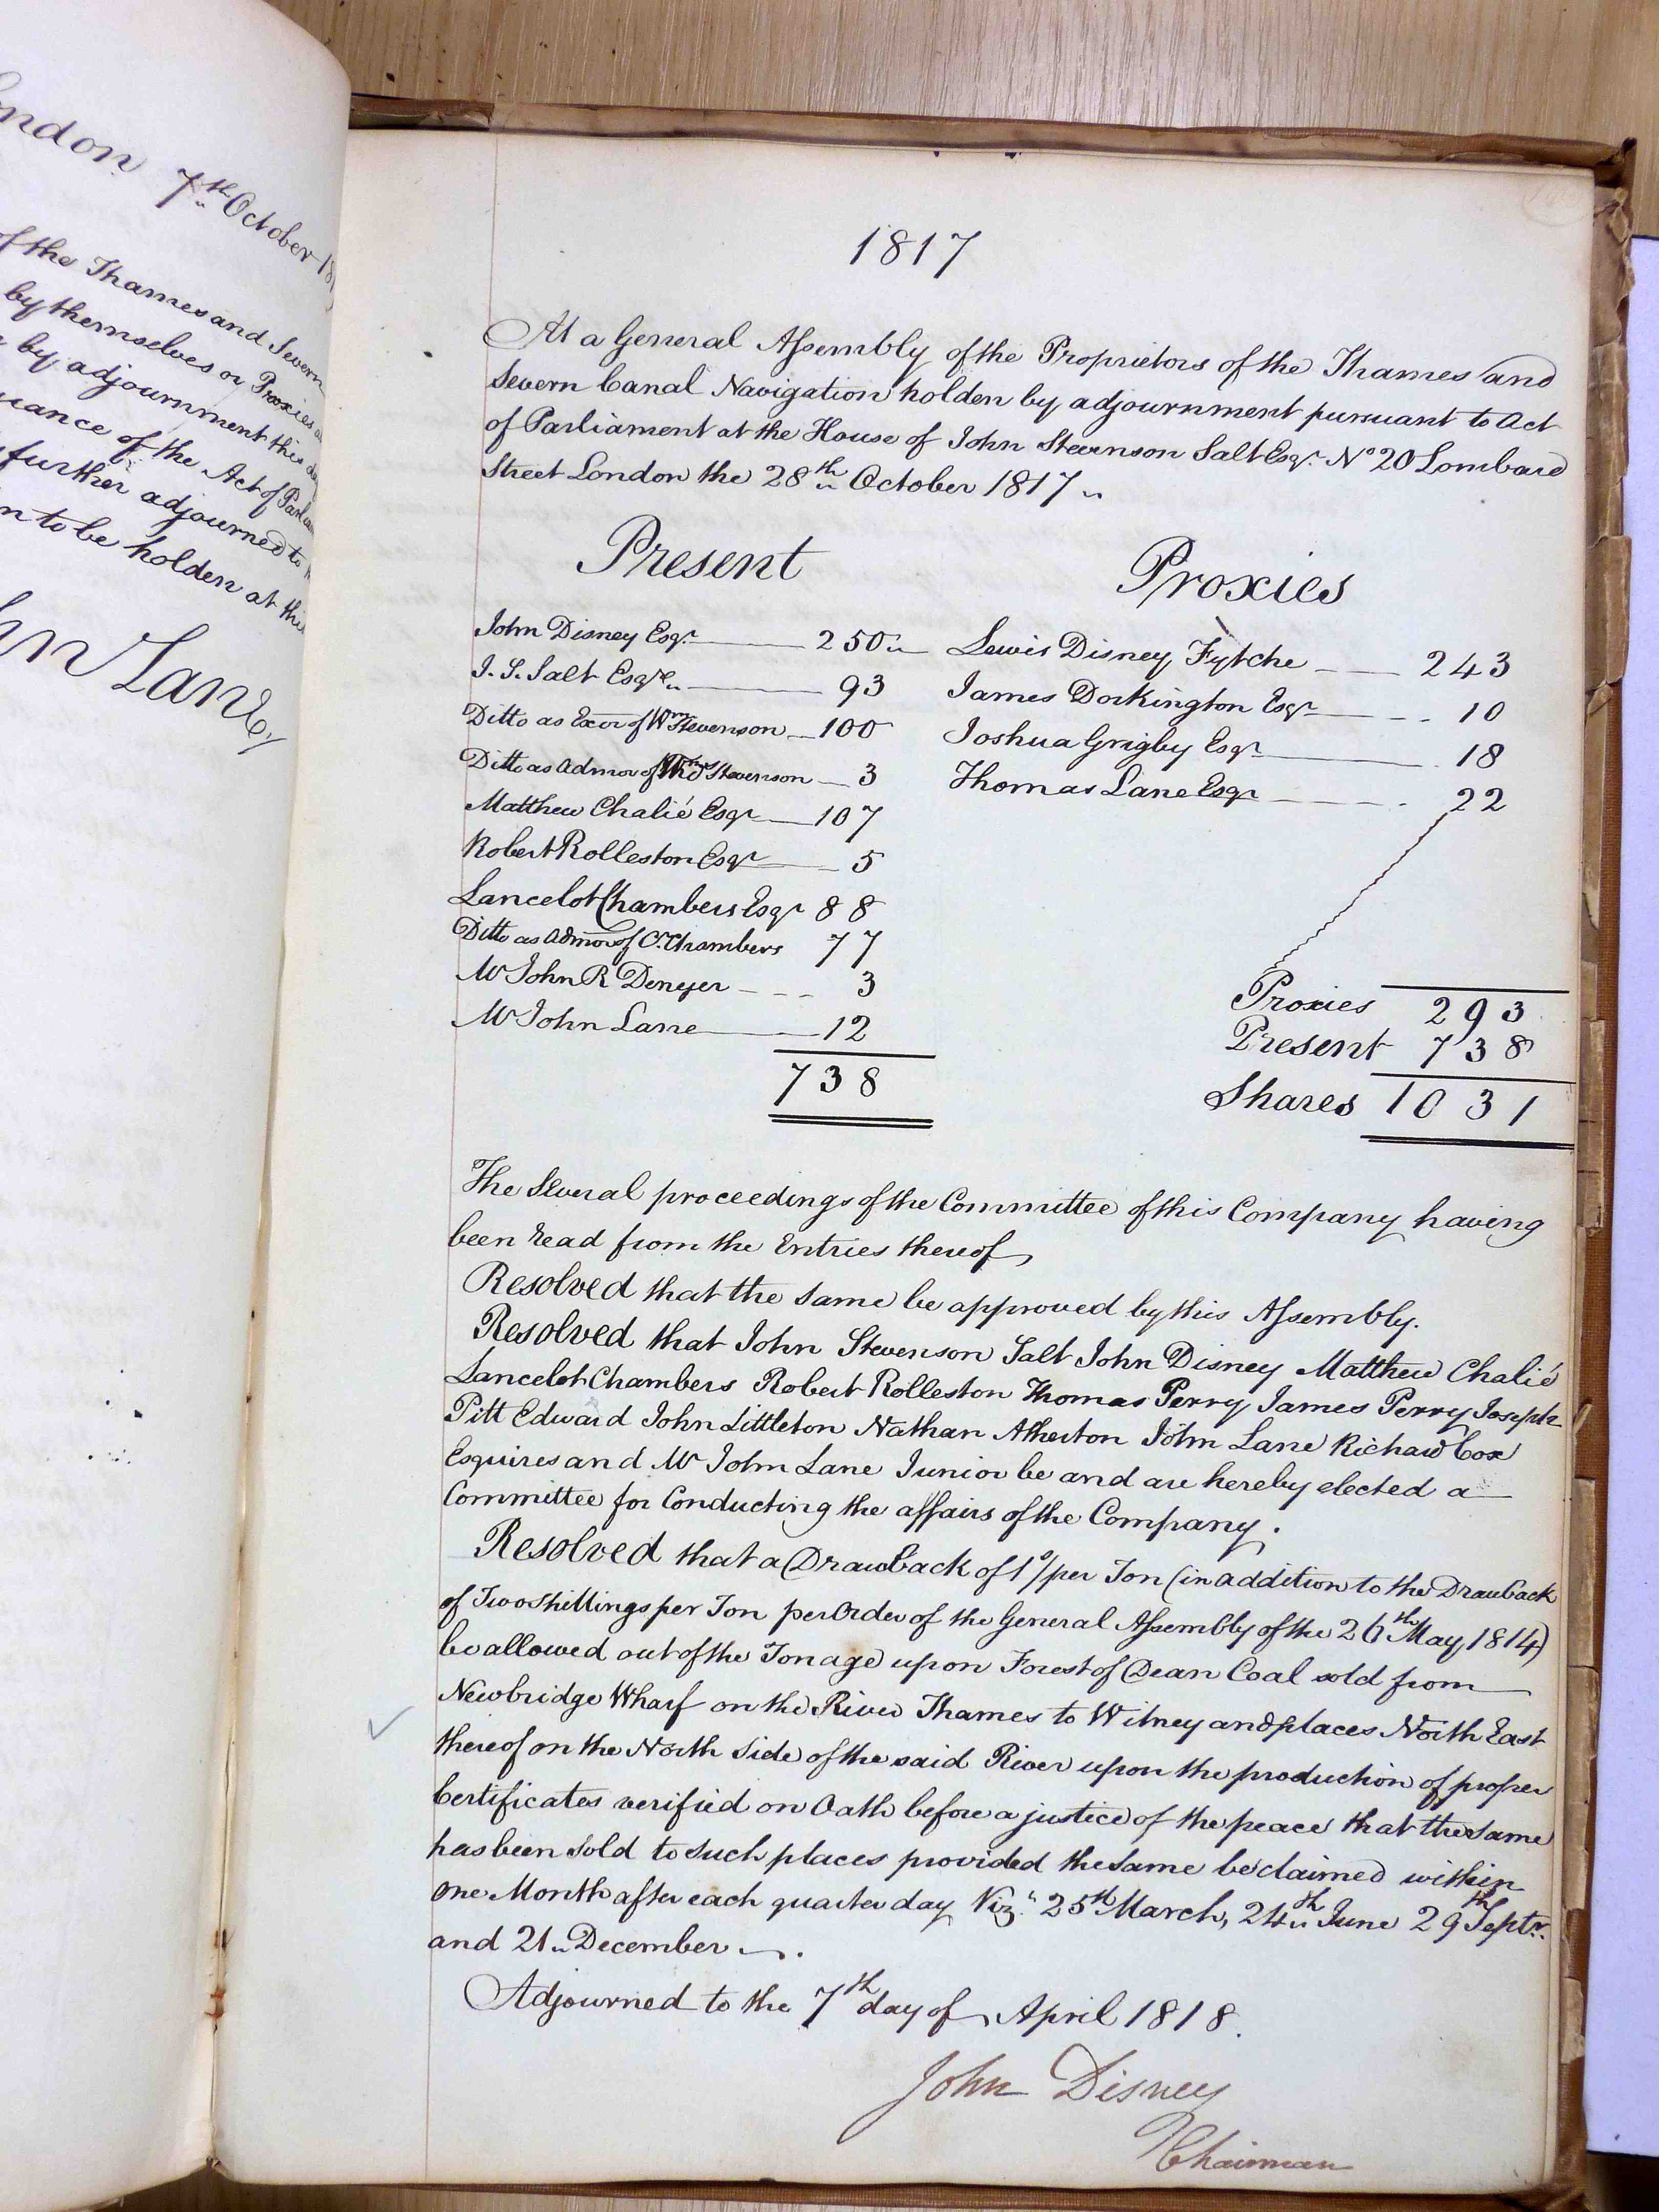 ondon 7th October 18
of the Thames and Severn
by themselves or Proxies
by adjournment this
of the Act of
further adjourned to
to be holden at this
Lane
1817
At a General Assembly of the Proprietors of the Thames and
Severn Canal Navigation holden by adjournment pursuant to Act
of Parliament at the House of John Stevenson Salt Esqr. No 20 Lombard
Street London the 28th October 1817
Present
John Disney Esqr. 250
J. S. Salt Esqre. 93
Ditto as Exor of Wm Stevenson 100
Ditto as Admor of Stevenson 3
Matthew Chalié Esqr 107
Robert Rolleston Esqr 5
Lancelot Chambers Esqr 88
Ditto as Admor of C. Chambers 77
Mr John R Denyer 3
Mr John Lane 12
738
Proxies
Lewis Disney Fytche 243
James Dorkington Esqr 10
Joshua Grigby Esqr 18
Thomas Lane Esqr 22
Proxies 293
Present 738
Shares 1031
The Several proceedings of the Committee of this Company having
been read from the Entries thereof
Resolved that the same be approved by this Assembly.
Resolved that John Stevenson Salt John Disney Matthew Chalié
Lancelot Chambers Robert Rolleston Thomas Perry James Perry Joseph
Pitt Edward John Littleton Nathan Atherton John Lane Richard Cox
Esquires and Mr John Lane Junior be and are hereby elected a
Committee for Conducting the affairs of the Company.
Resolved that a Drawback of 1s/ per Ton (in addition to the Drawback
of Two Shillings per Ton per Order of the General Assembly of the 26th May 1814)
be allowed out of the Tonage upon Forest of Dean Coal sold from
Newbridge Wharf on the River Thames to Witney and places North East
thereof on the North Side of the said River upon the production of proper
Certificates verified on Oath before a justice of the peace that the same
has been sold to such places provided the same be claimed within
one Month after each quarter day Viz. 25th March, 24th June 29th Septr.
and 21 December.
Adjourned to the 7th day of April 1818.
John Disney
Chairman